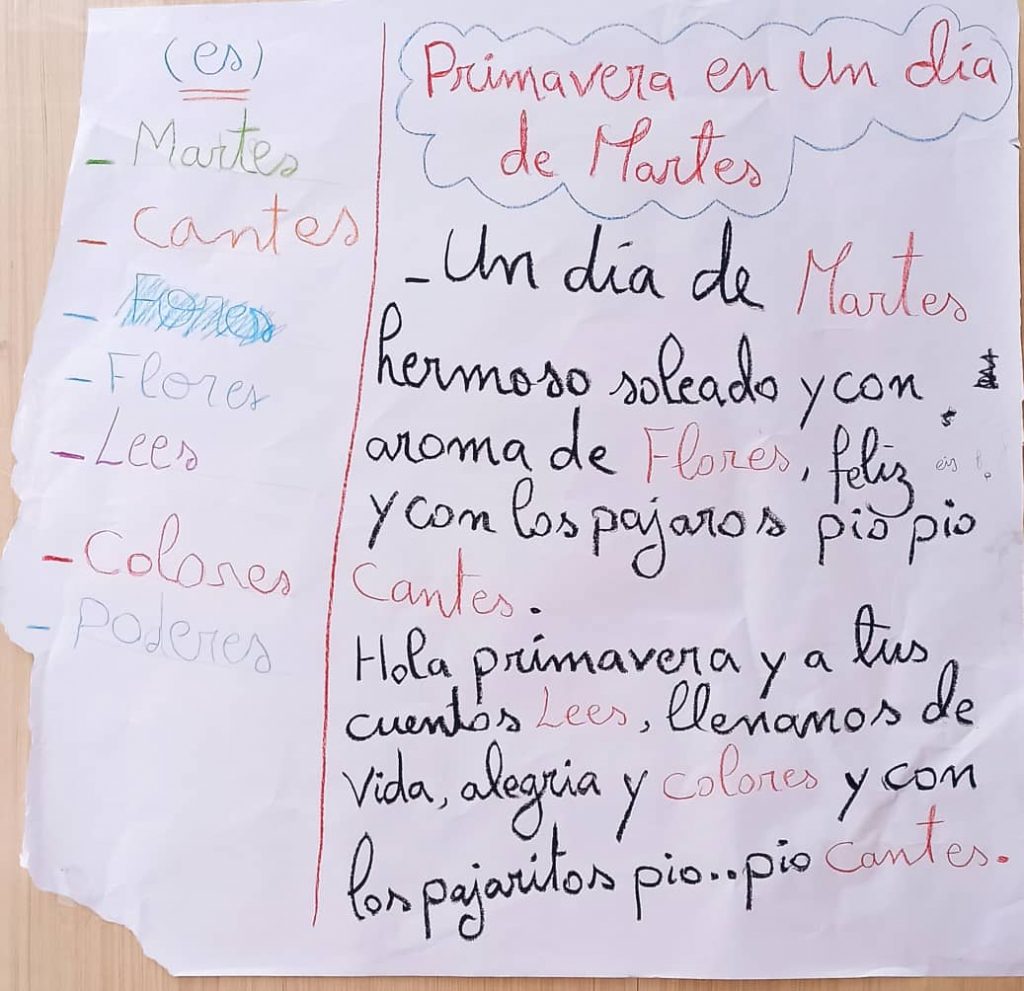 (es)
- Martes
- Cantes
- Flores
- Lees
- Colores
- Poderes
Primavera en un día
de Martes
- Un día de Martes
hermoso soleado y con
aroma de Flores, feliz
y con los pajaros pio pio
Cantes.
Hola primavera y a tus
cuentos Lees, llenanos de
Vida, alegria y colores y con
los pajaritos pio..pio cantes.